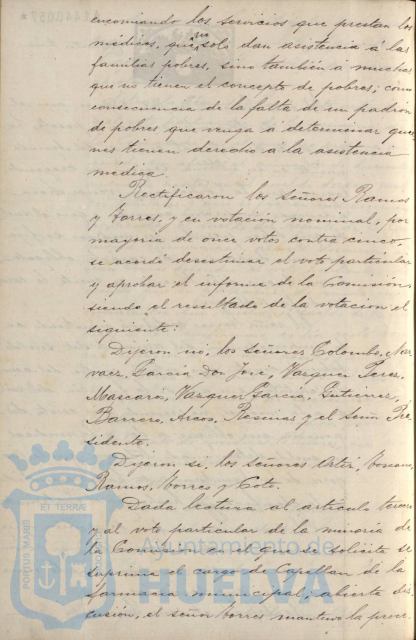 encomiando los servicios que prestan los
médicos, que no solo dan asistencia á las
familias pobres, sino también á muchas
que no tienen el concepto de pobres, como
consecuencia de la falta de un padrón
de pobres que venga á determinar quie
nes tienen derecho á la asistencia
médica.
Rectificaron los señores Ramos
y Torres, y en votación nominal, por
mayoría de once votos contra cinco,
se acordó desestimar el voto particular
y aprobar el informe de la Comisión,
siendo el resultado de la votación, el
siguiente:
Dijeron no, los señores Colombo, Nar
vaez, García Don José, Vazquez Perez,
Mascarós, Vazquez García, Gutierrez,
Barrero, Arcos, y el Señor Pre
sidente.
Dijeron, si, los señores Toscano,
Ramos, Torres y Coto.
Dada lectura al artículo tercero
y al voto particular de la minoría de
la Comisión en el que se solicita se
suprima el cargo de Capellan de la
farmacia municipal; abierta dis
cusión, el señor Torres mantuvo la
PORTUS MARIS
ET TERRÆ
Ayuntamiento de
HUELVA